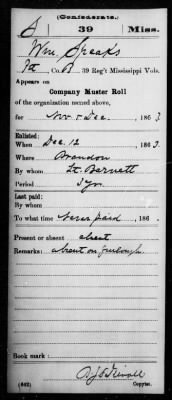 (Confederate.)
S 39 Miss.
Wm. Speaks
Pvt, Co. B, 39 Reg't Mississippi Vols.
Appears on
Company Muster Roll
of the organization named above,
for Nov & Dec, 1863
Enlisted:
When Dec. 12, 1863.
Where Brandon
By whom Lt. Barnett
Period 3 yrs
Last paid:
By whom
To what time Never paid, 186 .
Present or absent absent
Remarks: absent on furlough.
Book mark:
(642)
Copyist.